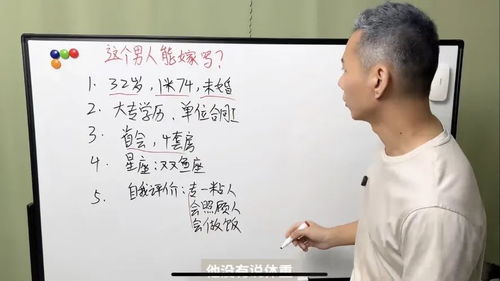 这个男人能嫁吗？
1. 32岁，1米74，未婚
2. 大专学历、单位合同工
3. 省会，4套房
4. 星座：双鱼座
5. 自我评价：
会照顾人
会做饭
他没有说体重